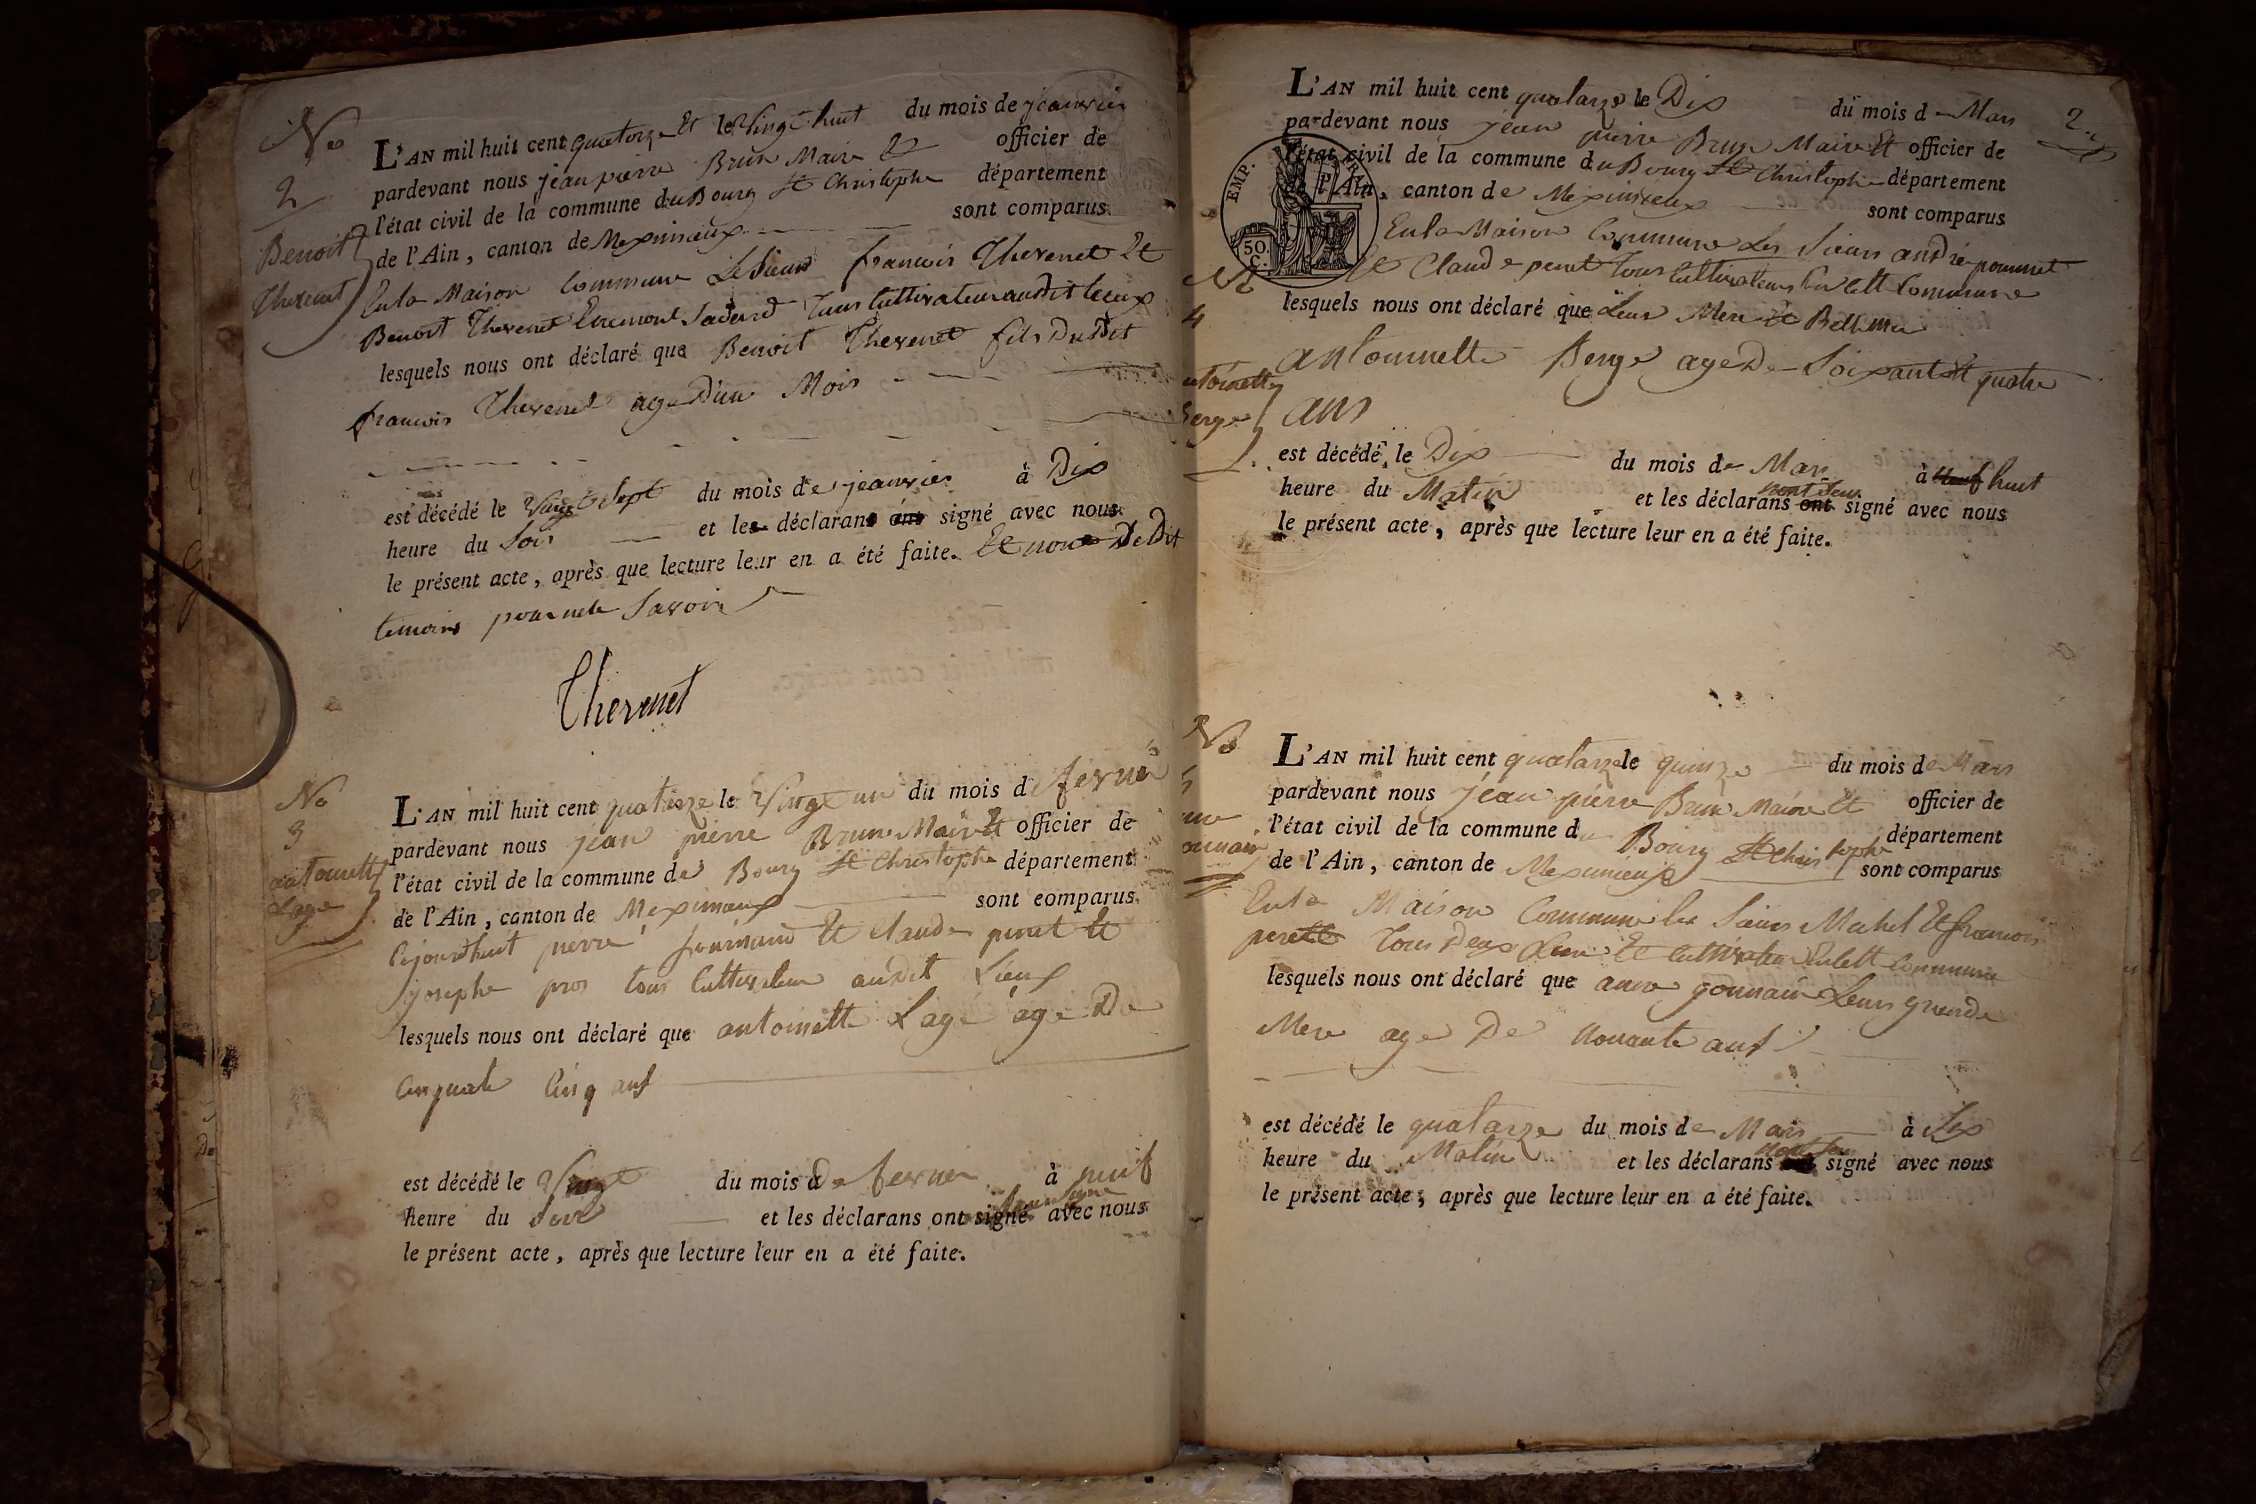 No
2
Benoit
Thevenet
L'AN mil huit cent quatorze et le vingt huit du mois de jeanvier
pardevant nous jean pierre Brun Maire Et officier de
l'état civil de la commune du Bourg St Christophe département
de l'Ain, canton de Meximieux sont comparus
En la Maison Commune Le Sieur francois Thevenet Et
Benoit Thevenet Tous Cultivateur audit lieux
lesquels nous ont déclaré que Benoit Thevenet fils Dudit
francois Thevenet age D'un Mois
est décédé le Vingt Sept du mois de jeanvier à Dix
heure du Soir et les déclarans ont signé avec nous
le présent acte, après que lecture leur en a été faite. Et non De Dit
temoins pour ne le Savoir
Thevenet
No
3
antoinette
Lage
L'AN mil huit cent quatorze le Vingt un du mois d fevrier
pardevant nous jean pierre Brun Maire Et officier de
l'état civil de la commune de Bourg St Christophe département
de l'Ain, canton de Meximieux sont comparus
Cejourd'huit pierre Et Claude peret et
josephe pros tous Cultivateur audit Lieux
lesquels nous ont déclaré que antoinette Lage âge De
Cinquate Cinq ans
est décédé le Vingt du mois d De fevrier à neuf
heure du Soir et les déclarans ont signé avec nous
le présent acte, après que lecture leur en a été faite.
2
L'AN mil huit cent quatorze le Dix du mois d e Mars
pardevant nous jean pierre Brun Maire Et officier de
l'état civil de la commune du Bourg St Christophe département
de l'Ain, canton de Meximieux sont comparus
EMP.
50.
C.
En la Maison Commune Les Sieurs andré pommet
Et Claude peret Tous Cultivateurs Commune
No
4
lesquels nous ont déclaré que Leur Mere Et Bell mere
antoinette
Berge
antoinette Berge age De Soixante Et quatre
ans
est décédé le Dix du mois de Mars à neuf huit
heure du Matin et les déclarans ont signé avec nous
le présent acte, après que lecture leur en a été faite.
No
5
L'AN mil huit cent quatorze le quinze du mois de Mars
pardevant nous jean pierre Brun Maire Et officier de
l'état civil de la commune du Bourg St Christophe département
de l'Ain, canton de Meximieux sont comparus
En la Maison Commune les Sieurs Michel Et francois
peret Tous Deux Et Cultivateur Commune
lesquels nous ont déclaré que anne gonnain Leur grande
Mere age De Nonante ans
est décédé le quatorze du mois de Mars à Six
heure du Matin et les déclarans signé avec nous
le présent acte, après que lecture leur en a été faite.